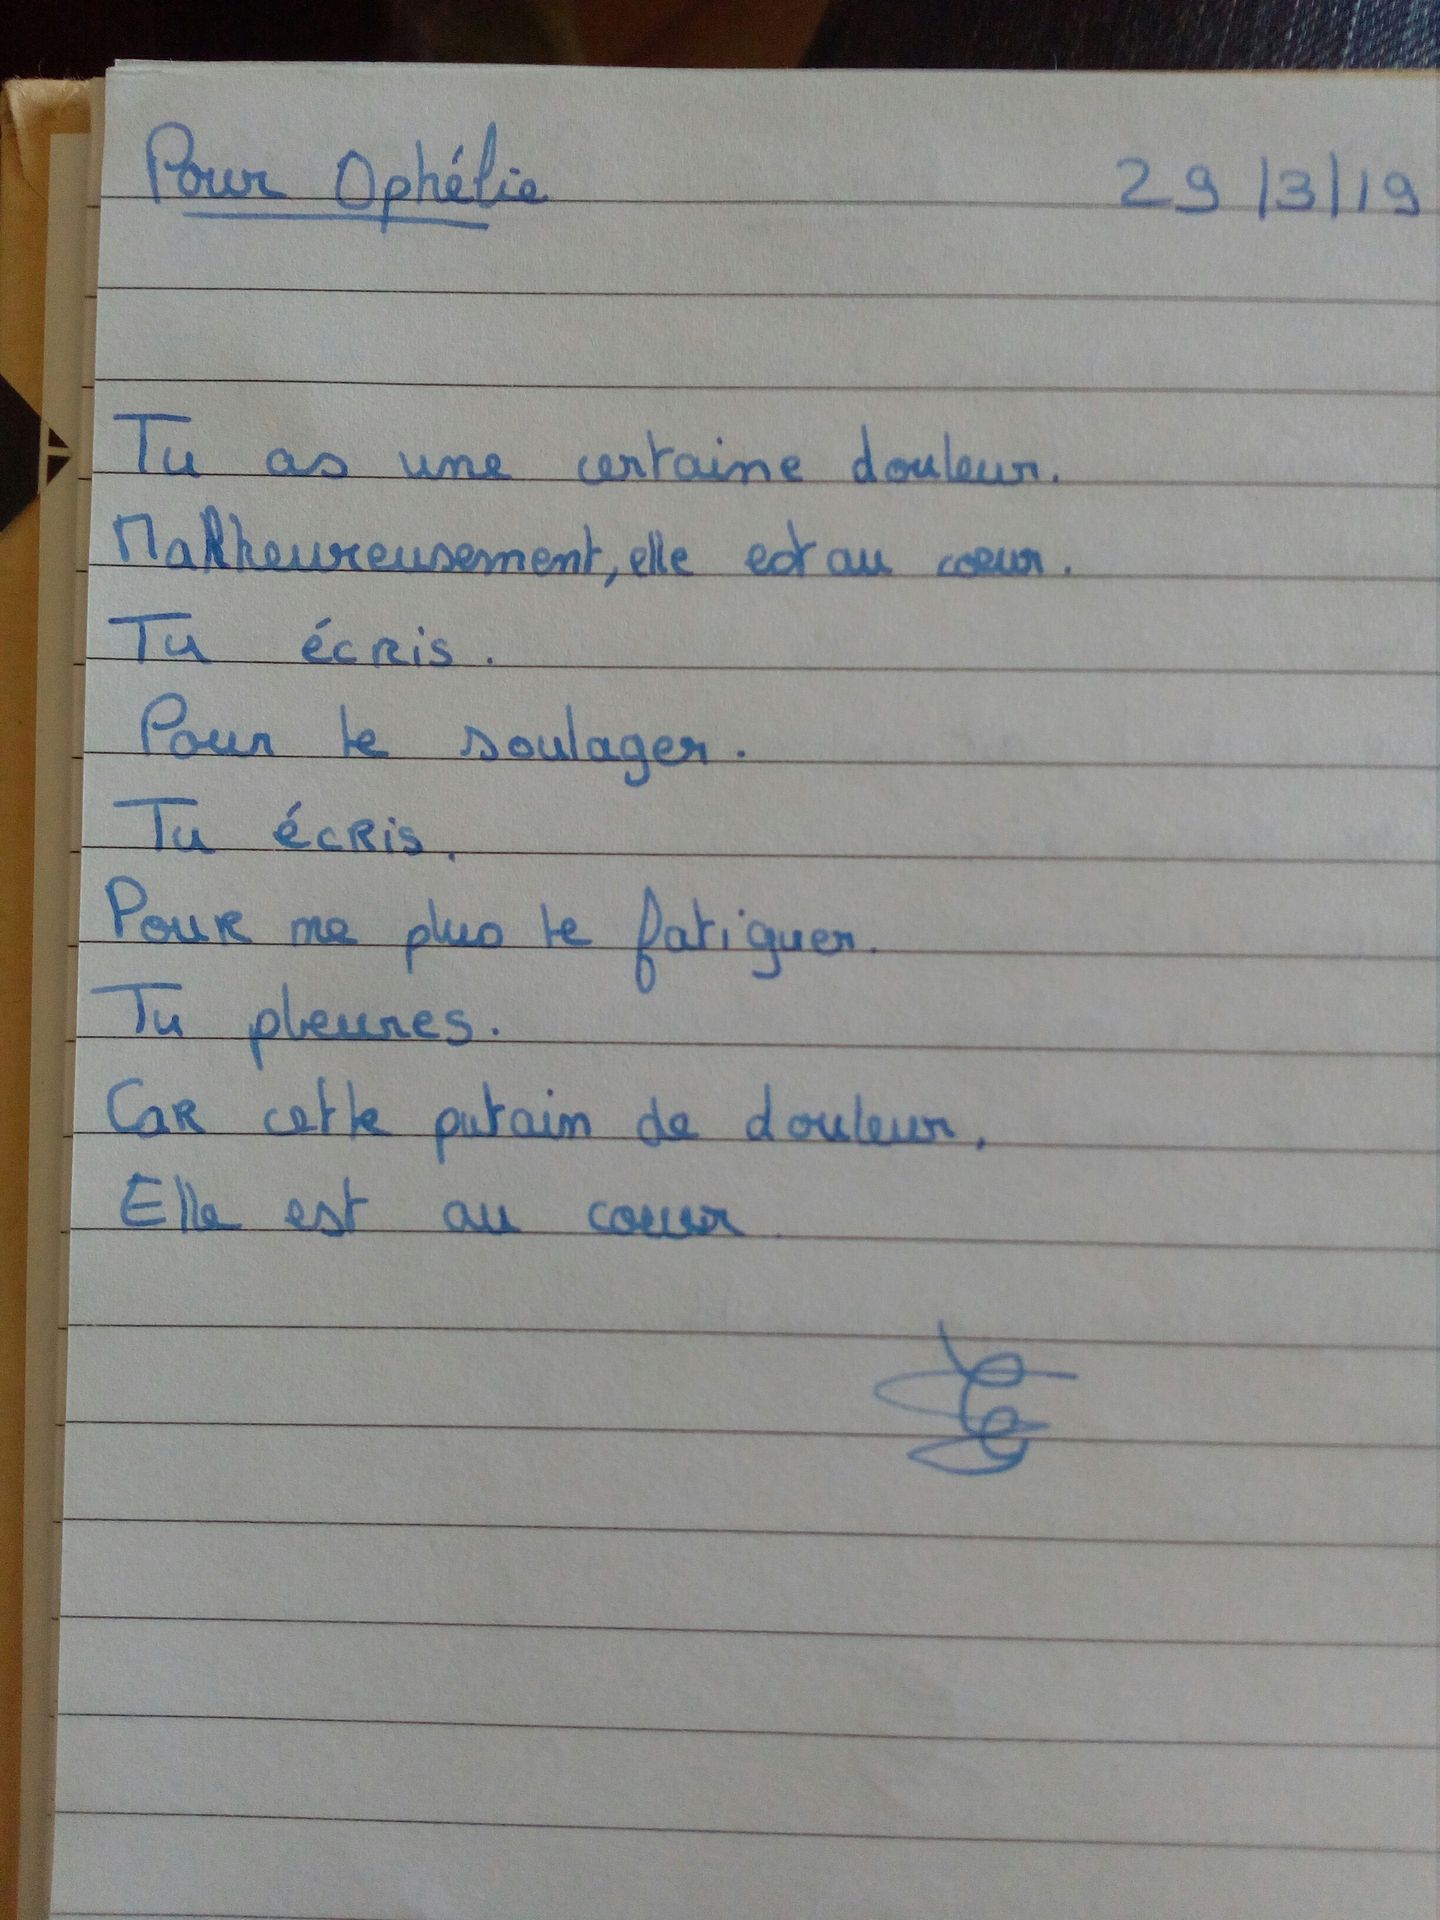 Pour Ophélie 29/3/19
Tu as une certaine douleur.
Malheureusement, elle est au coeur.
Tu écris.
Pour te soulager.
Tu écris.
Pour ne plus te fatiguer.
Tu pleures.
Car cette putain de douleur,
Elle est au coeur.